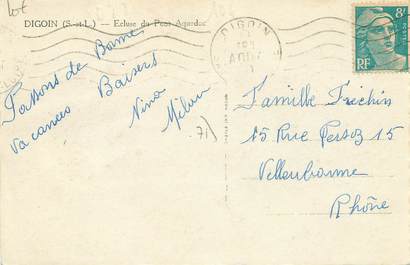 Lot
DIGOIN (S.-et-L.) — Ecluse du Pont Aqueduc
DIGOIN
8F
RF
Passons de Bonne
vacances Baisers
Nino
71
Famille Frichin
15 Rue Persoz 15
Villeurbanne
Rhône